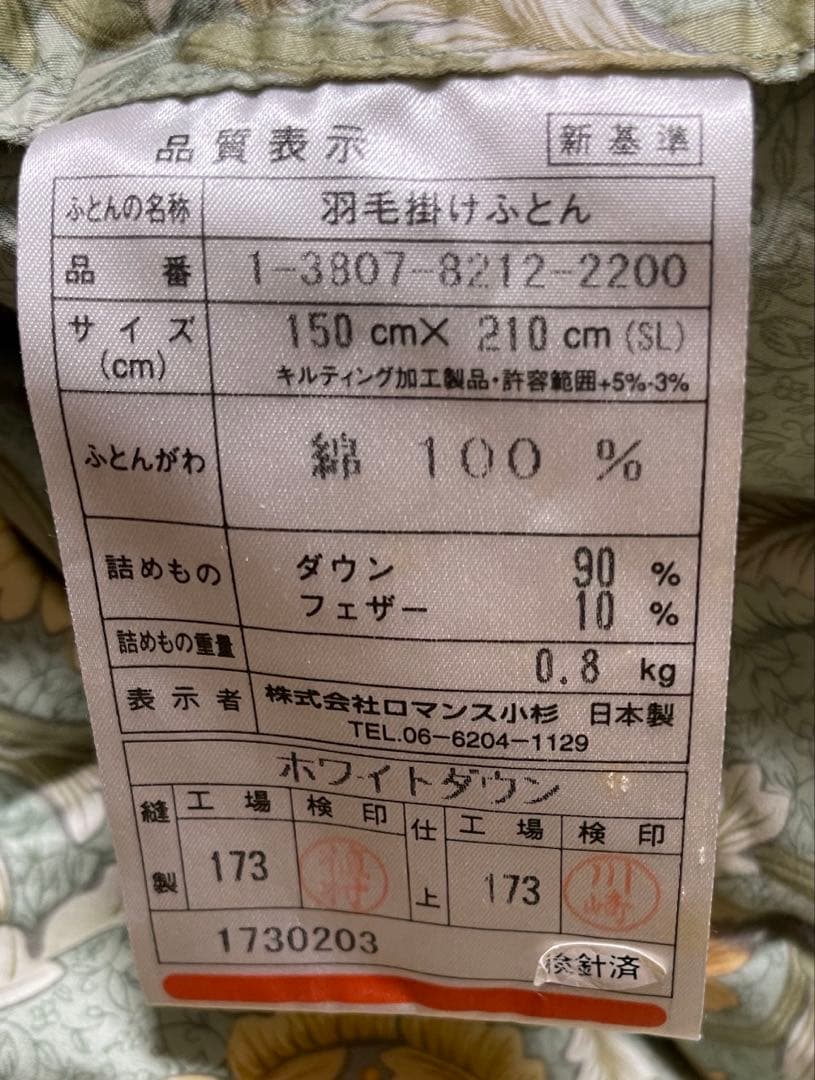 品質表示 新基準
ふとんの名称 羽毛掛けふとん
品番 1-3807-8212-2200
サイズ(cm) 150 cm× 210 cm (SL)
キルティング加工製品・許容範囲+5%-3%
ふとんがわ 綿 100 %
詰めもの ダウン 90 %
フェザー 10 %
詰めもの重量 0.8 kg
表示者 株式会社ロマンス小杉 日本製
TEL.06-6204-1129
ホワイトダウン
縫製 工場 検印 仕上 工場 検印
173 173 川崎
1730203
検針済